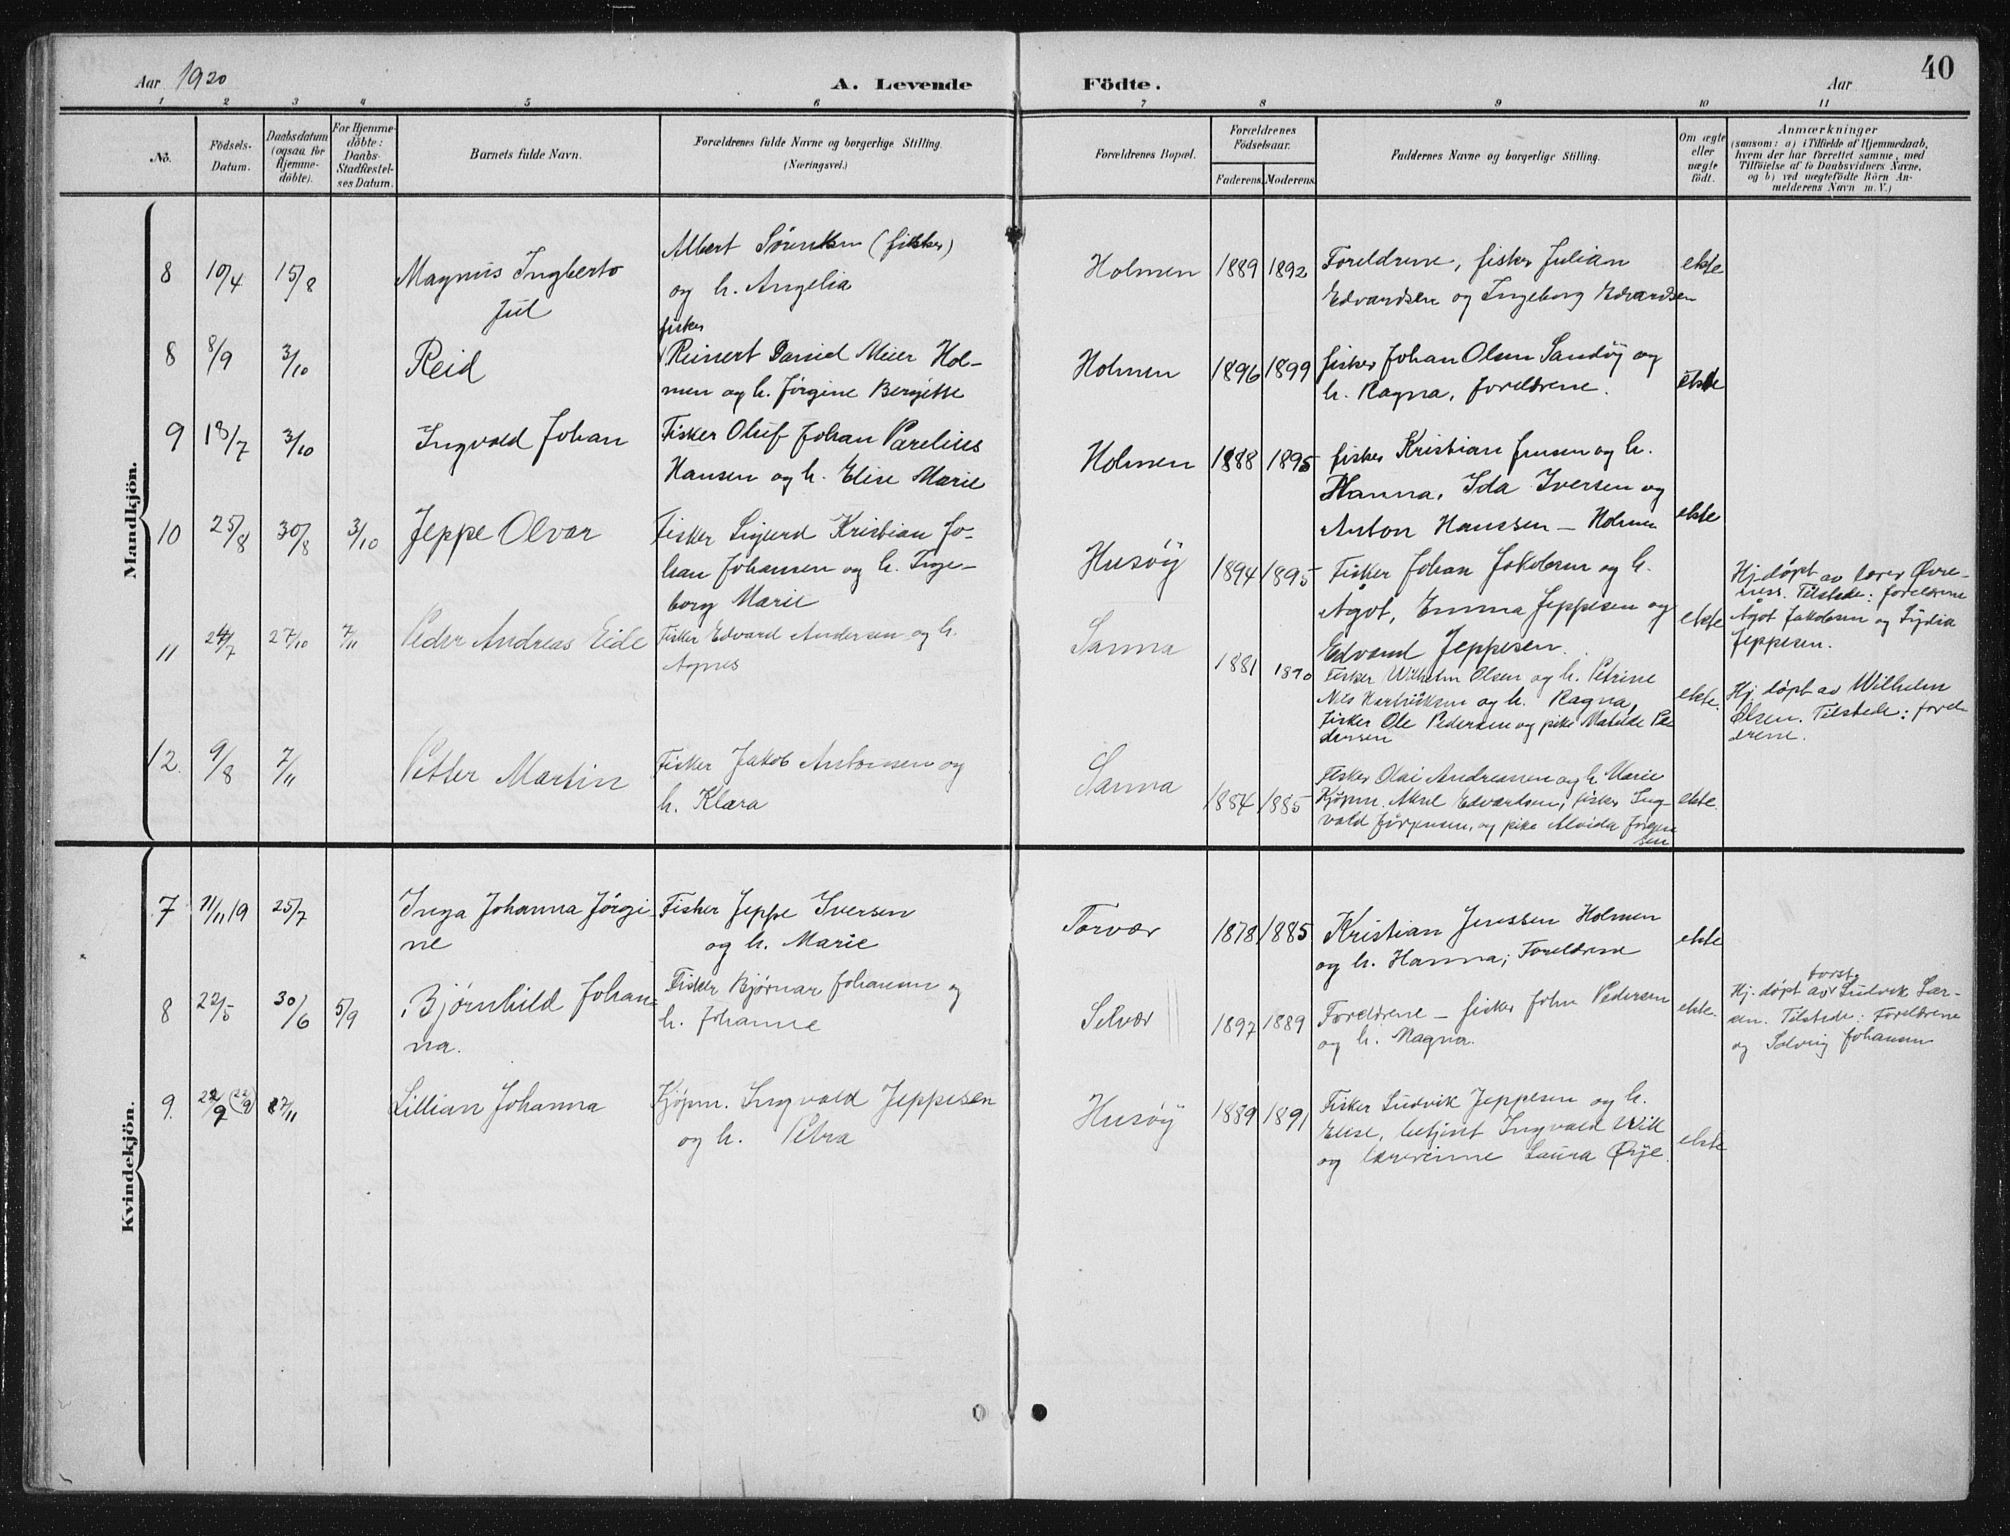 Aar 1920
A. Levende Födte.
Aar
40
1 2 3 4 5 6 7 8 9 10 11
No.
Födsels-Datum.
Daabsdatum (ogsaa for Hjemme-döbte).
For Hjemme-döbte: Daabs-Stadfæstel-ses Datum.
Barnets fulde Navn.
Forældrenes fulde Navne og borgerlige Stilling. (Næringsvei.)
Forældrenes Bopæl.
Forældrenes Födselsaar.
Faderens. Moderens.
Faddernes Navne og borgerlige Stilling.
Om ægte eller uægte födt.
Anmærkninger
(saasom: a) i Tilfælde af Hjemmedaab, hvem der har forrettet samme, med Tilföielse af to Daabsvidners Navne, og b) ved uægtefödte Börn An-melderens Navn m. V.)
Mandkjön.
8 10/4 15/8 Magnus Ingberto Jul
Albert Sörensen (fisker)
og h. Angelia
Holmen 1889 1892
Foreldrene, fisker Julian
Edvardsen og Ingeborg Edvardsen
ekte
8 8/9 3/10 Reid
fisker
Reinert Daniel Meier Hol-
men og h. Jörgine Bergitte
Holmen 1896 1899
fisker Johan Olsen Sandöy og
h. Ragna, foreldrene.
ekte
9 18/7 3/10 Ingvald Johan
Fisker Oluf Johan Parelius
Hansen og h. Elise Marie
Holmen 1888 1895
fisker Kristian Jensen og h.
Hanna, Ida Iversen og
Anton Hanssen – Holmen
ekte
10 25/8 30/8 3/10 Jeppe Olvar
Fisker Sigurd Kristian Jo-
han Johansen og h. Inge-
borg Marie
Husöy 1894 1895
Fisker Johan Jakobsen og h.
Ågot, Emma Jeppesen og
Edvard Jeppesen.
ekte
Hj. döpt av lærer Övre-
ness. Tilstede: foreldrene
Ågot Jakobsen og Lydia
Jeppesen.
11 24/7 27/10 7/11 Peder Andreas Eide
Fisker Edvard Andersen og h.
Agnes
Sanna 1881 1890
Fisker Wilhelm Olsen og h. Petrine
og h. Ragna,
Fisker Ole Pedersen og pike Matilde Pe-
dersen
ekte.
Hj. döpt av Wilhelm
Olsen. Tilstede: forel-
drene.
12. 9/8 7/11 Petter Martin
Fisker Jakob Antonsen og
h. Klara
Sanna 1884 1885
Fisker Olai Andreassen og h. Marie
Kjöpm. Aksel Edvardsen, fisker Ing-
vald Jörgensen, og pike Alvida Jörgen
sen
ekte.
Kvindekjön.
7 11/11 19 25/7 Inga Johanna Jörgi
ne
Fisker Jeppe Iversen
og h. Marie
Torvær 1878 1885
Kristian Jenssen Holmen
og h. Hanna; Foreldrene
ekte
8 22/5 30/6 5/9 Bjørnhild Johan-
na.
Fisker Bjørnar Johansen og
h. Johanne
Selvær 1897 1889
Foreldrene – fisker John Pedersen
og h. Magna.
ekte.
Hj. döpt av Ludvik Lar-
sen. Tilstede: Foreldrene
og Solveig Johansen
9. 22/9 (22/9) 27/11 Lillian Johanna
Kjöpm. Ingvald Jeppesen
og h. Petra
Husöy 1889 1891
Fisker Ludvik Jeppesen og h.
Elise, betjent Ingvald Wik
og lærerinne Laura Örje.
ekte